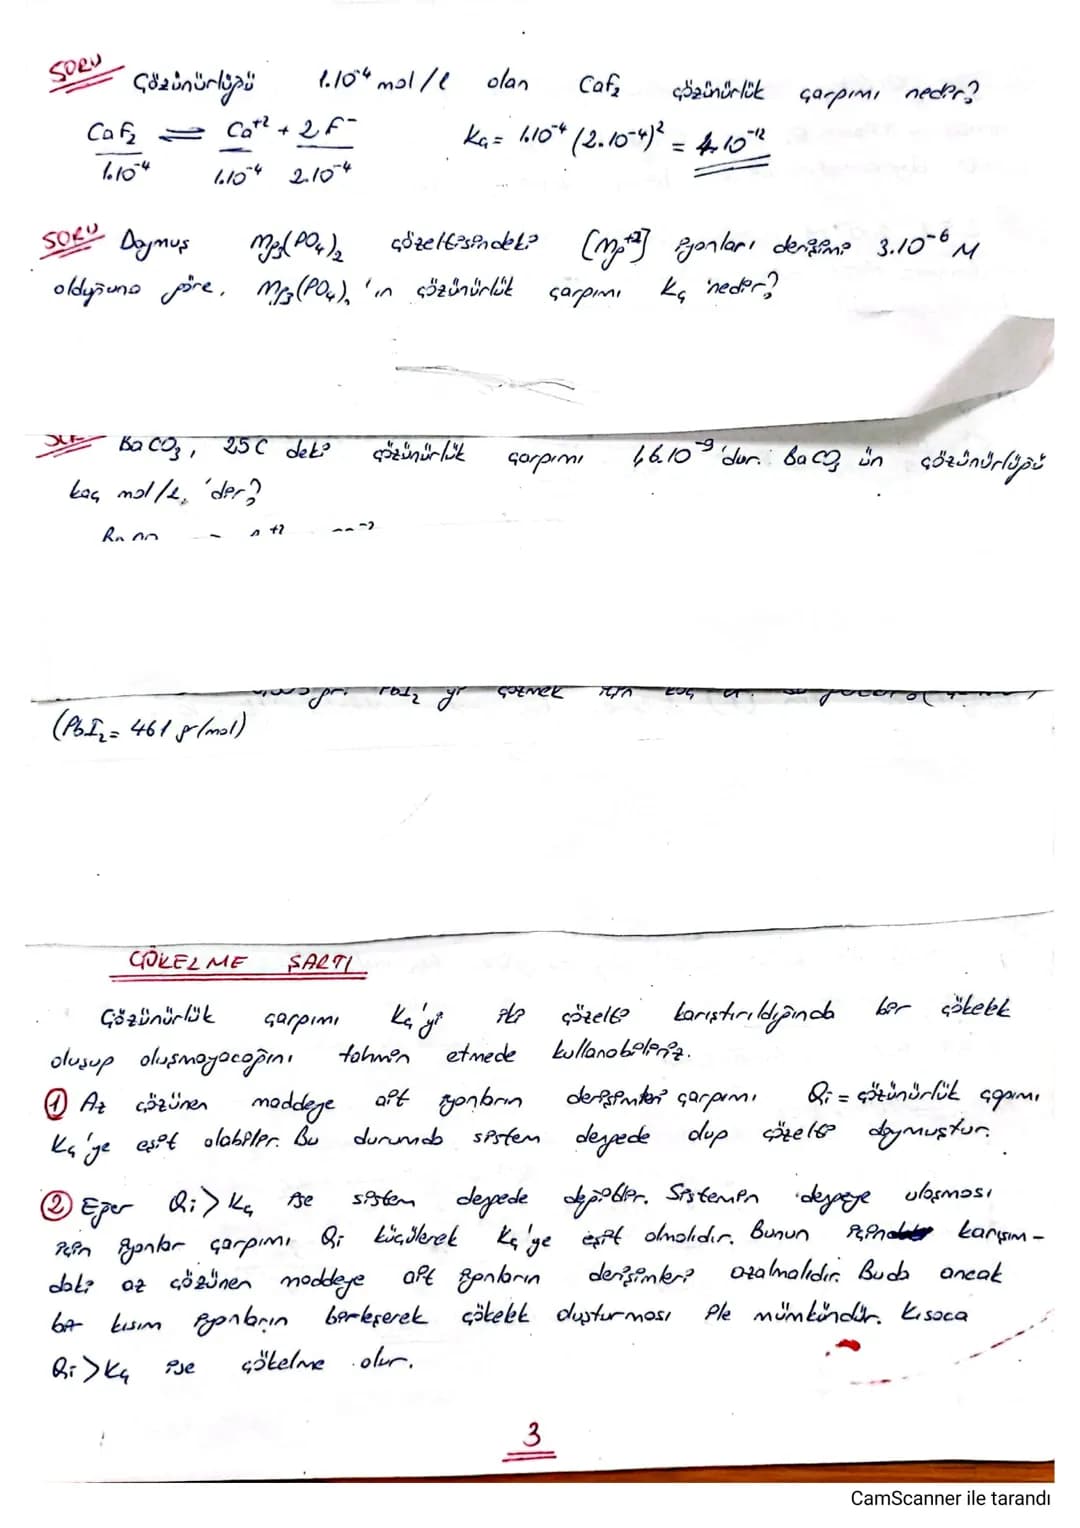 SORU Çözünürlüğü 1.10⁻⁴ mol/l olan CaF₂ çözünürlük çarpımı nedir?
CaF₂ ⇌ Ca⁺² + 2F⁻ Kç = 1.10⁻⁴ (2.10⁻⁴)² = 4.10⁻¹²
1.10⁻⁴ 1.10⁻⁴ 2.10⁻⁴
SORU Doymuş Mg₃(PO₄)₂ çözeltisindeki [Mg⁺²] iyonları derişimi 3.10⁻⁶ M
olduğuna göre, Mg₃(PO₄)₂'ın çözünürlük çarpımı Kç nedir?
BaCO₃, 25 C deki çözünürlük çarpımı 1,6.10⁻⁹'dur. BaCO₃ ün çözünürlüğü
kaç mol/L'dir?
PbI₂ yi çözmek için kaç
(PbI₂ = 461 gr/mol)
ÇÖKELME ŞARTI
Çözünürlük çarpımı Kç'yi iki çözelti karıştırıldığında bir çökelek
oluşup oluşmayacağını tahmin etmede kullanabiliriz.
① Az çözünen maddeye ait iyonların derişimleri çarpımı Qi = çözünürlük çapımı
Kç'ye eşit olabilir. Bu durumda sistem dengede olup çözelti doymuştur.
② Eğer Qi > Kç ise sistem dengede değildir. Sistemin dengeye ulaşması
için iyonlar çarpımı Qi küçülerek Kç'ye eşit olmalıdır. Bunun için karışım-
daki az çözünen maddeye ait iyonların derişimleri azalmalıdır. Buda ancak
bir kısım iyonların birleşerek çökelek oluşturması ile mümkündür. Kısaca
Qi > Kç ise çökelme olur.
3
CamScanner ile tarandı